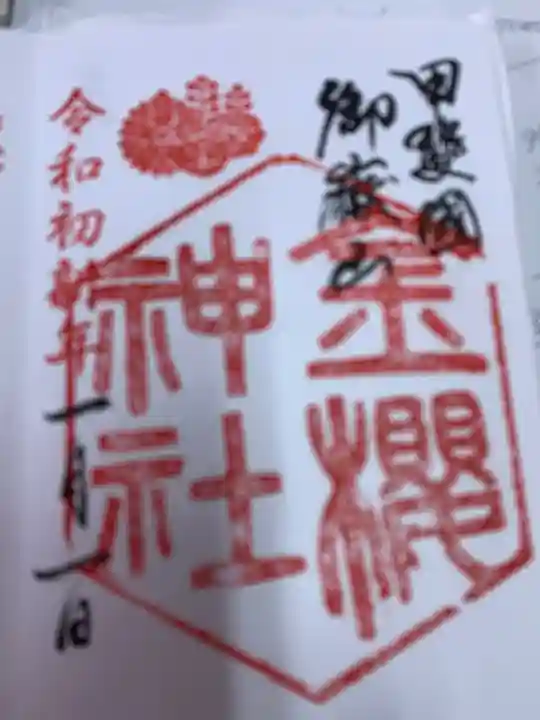 甲斐國
御嶽山
金櫻
神社
令和初詣年
一月一日